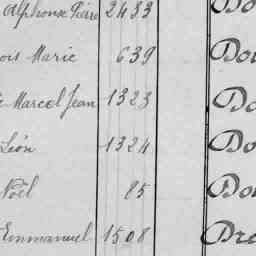 Alphonse Pierre 2433 Do
ois Marie 639 Dou
Marcel Jean 1323 Do
Léon 1324 Do
Noël 85 Do
Emmanuel 1508 Dre